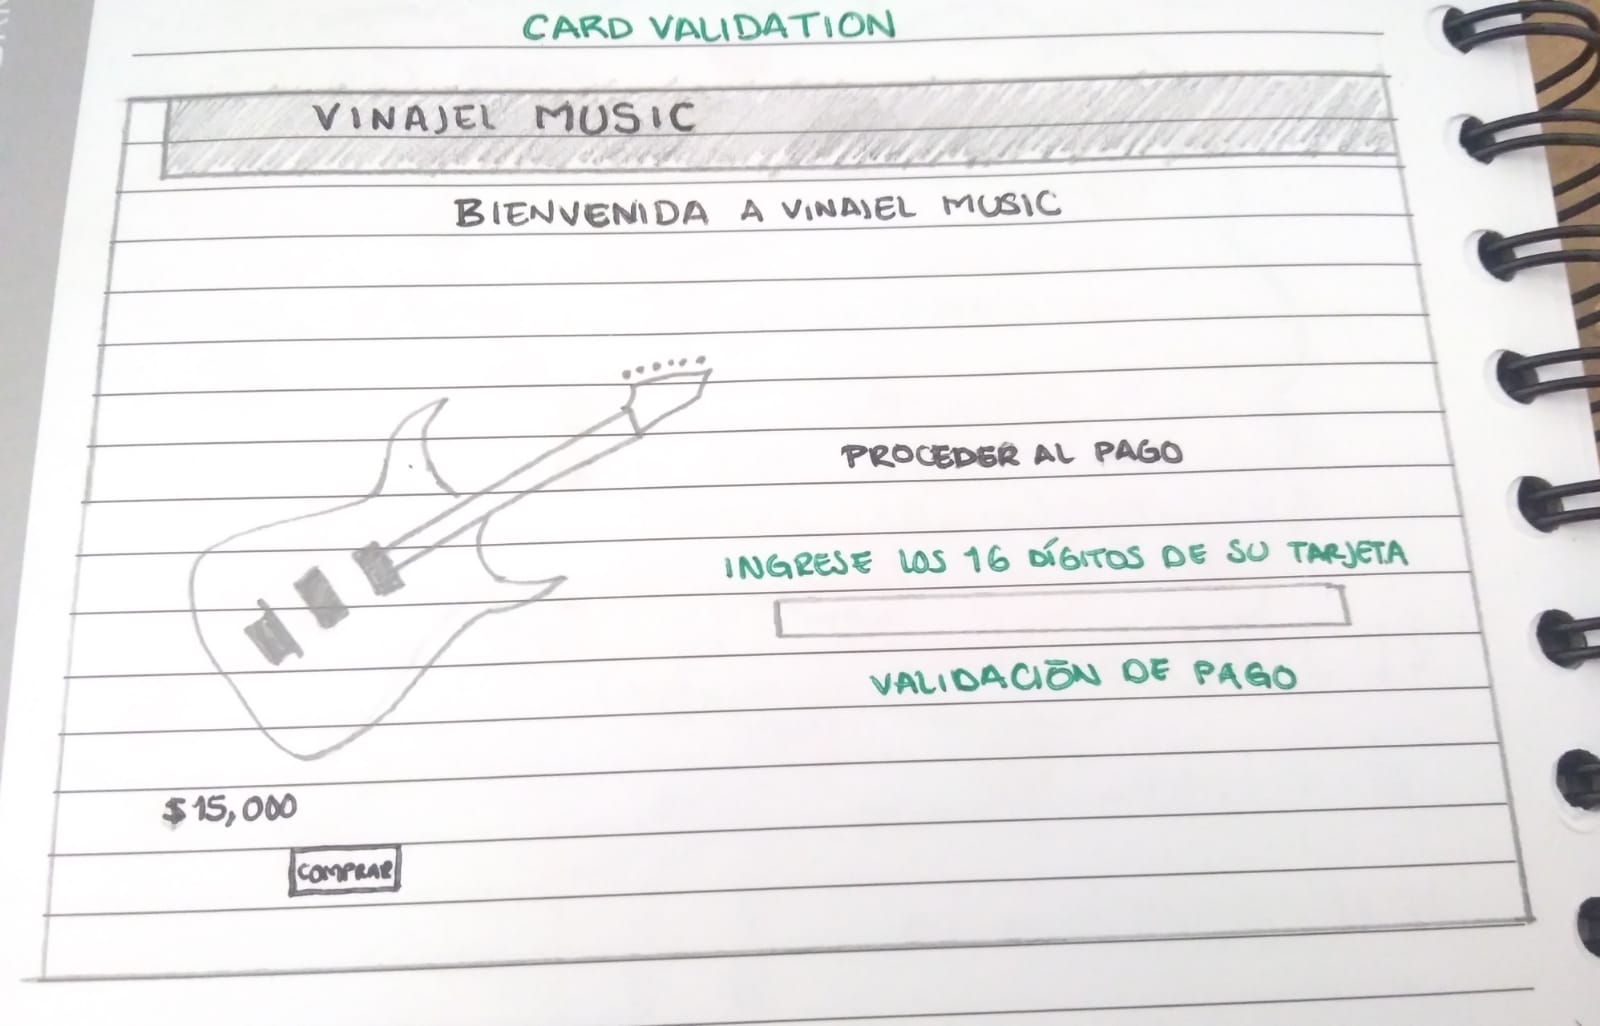 CARD VALIDATION
VINAJEL MUSIC
BIENVENIDA A VINAJEL MUSIC
PROCEDER AL PAGO
INGRESE LOS 16 DÍGITOS DE SU TARJETA
VALIDACIÓN DE PAGO
$15,000
COMPRAR